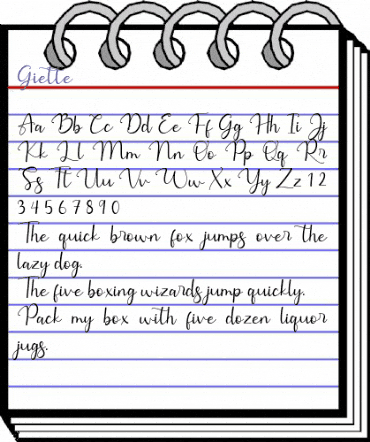 Gielle
Aa Bb Cc Dd Ee Ff Gg Hh Ii Jj
Kk Ll Mm Nn Oo Pp Qq Rr
Ss Tt Uu Vv Ww Xx Yy Zz 1 2
3 4 5 6 7 8 9 0
The quick brown fox jumps over the
lazy dog.
The five boxing wizards jump quickly.
Pack my box with five dozen liquor
jugs.